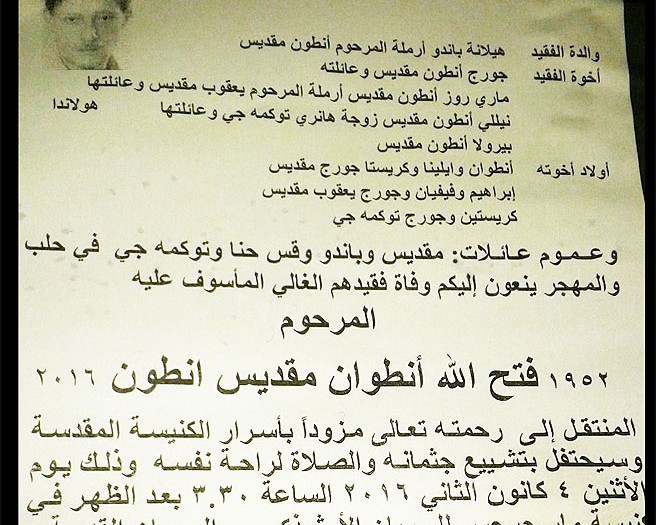 والدة الفقيد هيلانة باندو أرملة المرحوم أنطون مقديس
أخوة الفقيد جورج أنطون مقديس وعائلته
ماري روز أنطون مقديس أرملة المرحوم يعقوب مقديس وعائلتها
نيللي أنطون مقديس زوجة هانري توكمه جي وعائلتها هولاندا
بيرولا أنطون مقديس
أولاد أخوته أنطوان وايلينا وكريستا جورج مقديس
إبراهيم وفيفيان وجورج يعقوب مقديس
كريستين وجورج توكمه جي
وعـمـوم عـائـلات: مقديس وباندو وقس حنا وتوكمه جي في حلب
والمهجر ينعون إليكم وفاة فقيدهم الغالي المأسوف عليه
المرحوم
١٩٥٢ فتح الله أنطوان مقديس انطون ٢٠١٦
المنتقل إلى رحمته تعالى مزوداً بأسرار الكنيسة المقدسة
وسيحتفل بتشييع جثمانه والصلاة لراحة نفسه وذلك يوم
الأثنين ٤ كانون الثاني ٢٠١٦ الساعة ٣.٣٠ بعد الظهر في